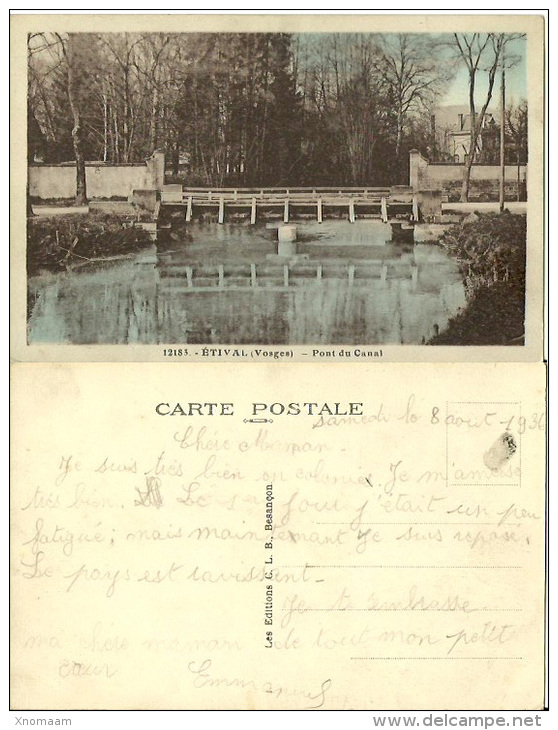 12185. - ÉTIVAL (Vosges) - Pont du Canal
CARTE POSTALE
samedi le 8 aout 1936
Chére Maman.
Je suis trés bien en colonies Je m'amuse
trés bien. Le jour j'était un peu
fatigué; mais maintenant Je suis reposé.
Le pays est ravissant.
Je t'embrasse
ma chére maman de tout mon petit
cœur Emmanuel
Les Editions C. L. B. Besançon
Xnomaam
www.delcampe.net